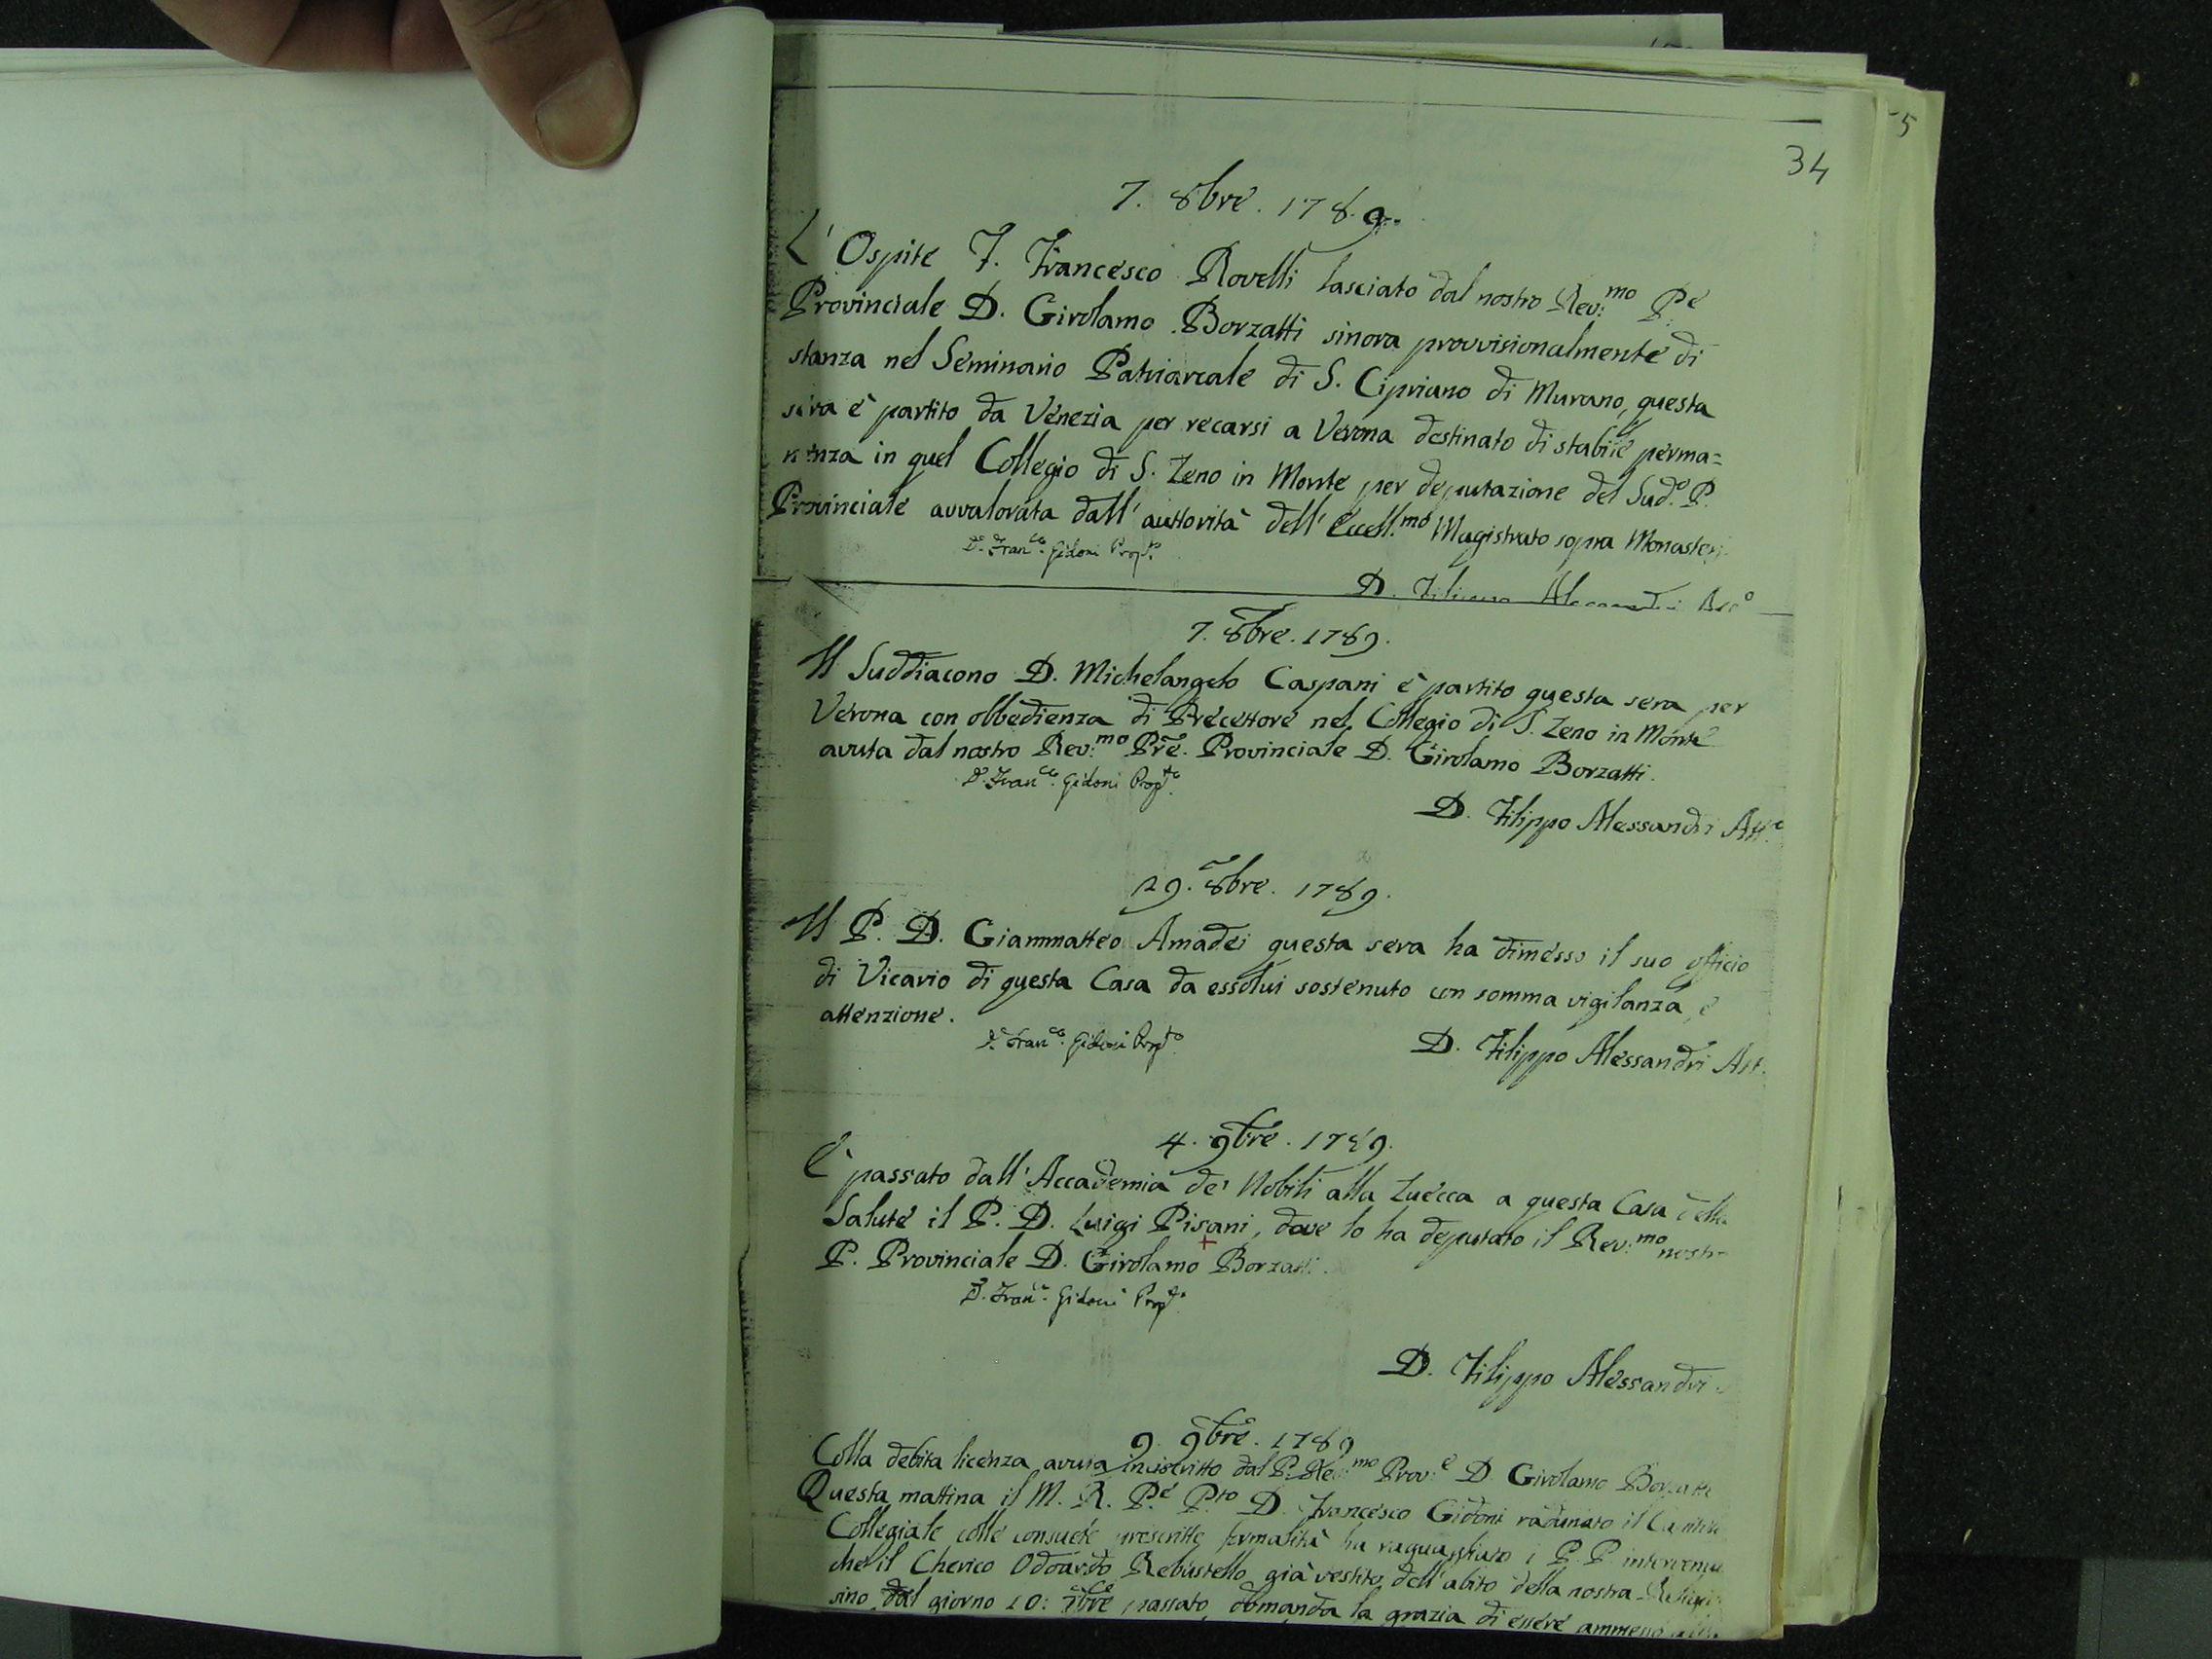 5
34
7. 8bre. 1789.
L'Ospite F. Francesco Rovelli lasciato dal nostro Rev:mo Pe
Provinciale D. Girolamo Borzatti sinora provvisionalmente di
stanza nel Seminario Patriarcale di S. Cipriano di Murano, questa
sera è partito da Venezia per recarsi a Verona destinato di stabile perma=
nenza in quel Collegio di S. Zeno in Monte per deputazione del Sudo. P.
Provinciale avvalorata dall'auttorità dell'Eccell.mo Magistrato sopra Monasterj
D. Franco. Gidoni Propto.
D. Filippo Alessandri
7. 8bre. 1789.
Il Suddiacono D. Michelangelo Caspani è partito questa sera per
Verona con obbedienza di Precettore nel Collegio di S. Zeno in Monte
avuta dal nostro Rev:mo Pre. Provinciale D. Girolamo Borzatti.
D. Franco. Gidoni Propto.
D. Filippo Alessandri Att.o
29. 8bre. 1789.
Il P. D. Giammatteo Amadei questa sera ha dimesso il suo officio
di Vicario di questa Casa da essolui sostenuto con somma vigilanza, e
attenzione.
D. Franco. Gidoni Propto
D. Filippo Alessandri Att.
4. 9bre. 1789.
È passato dall'Accademia de' Nobili alla Zuecca a questa Casa della
Salute il P. D. Luigi Pisani, dove lo ha deputato il Rev:mo nostro
P. Provinciale D. Girolamo Borzatti.
D. Franco. Gidoni Propto.
D. Filippo Alessandri
9. 9bre. 1789
Colla debita licenza avuta iniscritto dal P. Rev:mo Prov:e D. Girolamo Borzatti
Questa mattina il M. R. P.e Pto D. Francesco Gidoni radunato il Capitolo
Collegiale colle consuete prescritte formalità ha raguagliato i P. P. intervenuti
che il Cherico Odoardo Rebustello già vestito dell'abito della nostra Religione
sino dal giorno 10: passato, domanda la grazia di essere ammesso